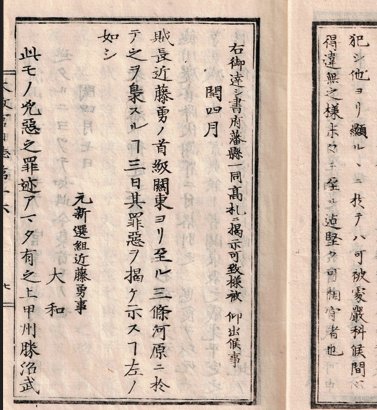 犯シ他ヨリ顯ルヽニ於テハ可被處嚴科候間心
得違無之様末々ニ至ル迠堅ク可相守者也
右御達シ書府藩縣一同高札ニ揭示可致様被 仰出候事
閏四月
賊長近藤勇ノ首級關東ヨリ至ル三條河原ニ於
テ之ヲ梟スルヿ三日其罪惡ヲ揭ケ示スヿ左ノ
如シ
元新選組近藤勇事
大和
此モノ兇惡之罪迹アマタ有之上甲州勝沼武